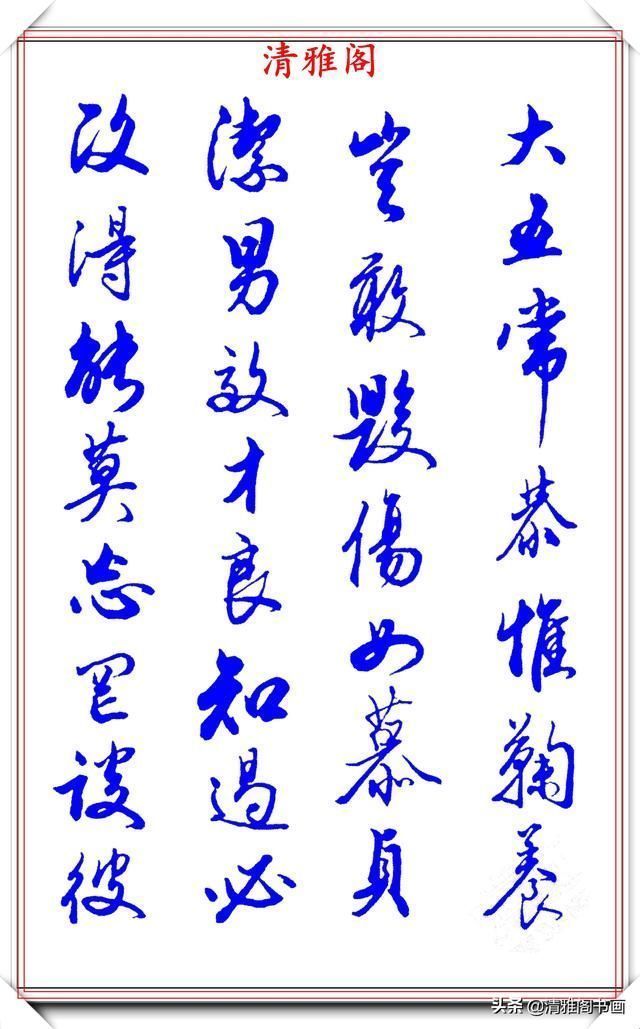 清雅阁
大五常恭惟鞠養
豈敢毀傷女慕貞
潔男效才良知過必
改得能莫忘罔談彼
头条@清雅阁书画